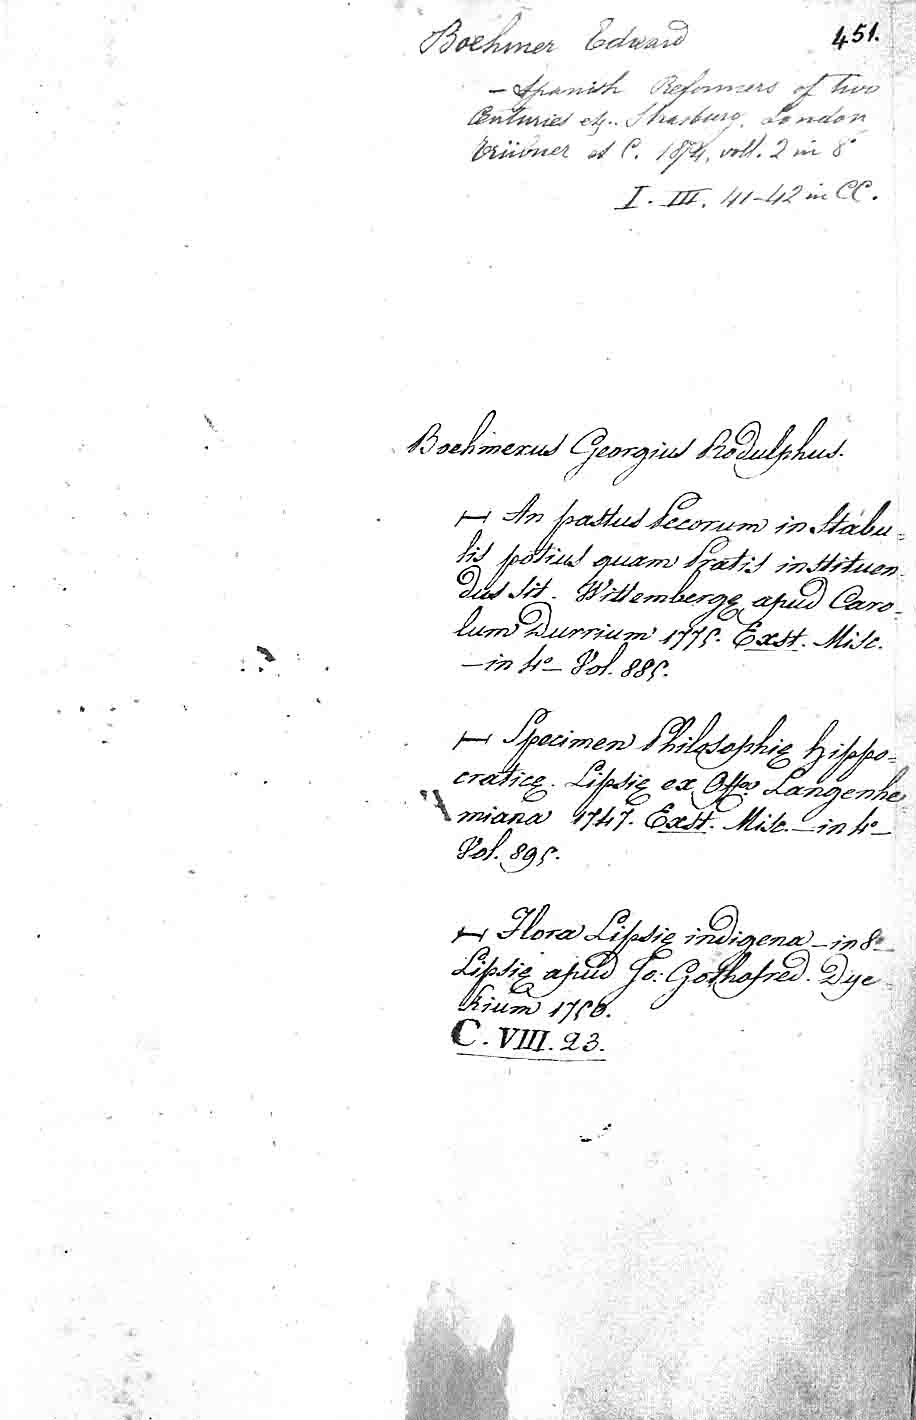 Boehmer Edward
451.
– Spanish Reformers of two
Centuries etz. Strasburg, London
Trübner et C. 1874, voll. 2 in 8°
I. III. 41-42 in CC.
Boehmerus Georgius Rodulphus.
⊢ An pastus Pecorum in Stabu=
lis potius quam Pratis instituen=
dus sit. Wittembergę apud Caro=
lum Durrium 1775. Exst. Misc.
– in 4° – Vol. 885.
⊢ Specimen Philosophię Hippo=
craticę. Lipsię ex Offa. Langenhe
miana 1747. Exst. Misc. – in 4° –
Vol. 895.
⊢ Flora Lipsię indigena – in 8° –
Lipsię apud Jo: Gothofred. Dyc=
kium 1750.
C. VIII. 23.